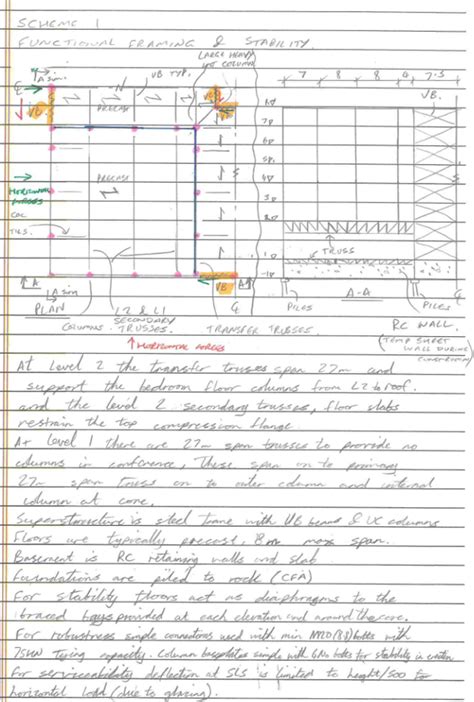 SCHEME 1
FUNCTIONAL FRAMING & STABILITY.
LARGE HEAVY
COLUMN
A Sim.
UB TYP.
7 8 8 4 7.5
VB
PRECAST
VB.
7
6
5
4
3
2
1
PRECAST
HORIZONTAL
FORCES
COL
TIES.
TRUSS
A
A Sim
VB
A
PLAN
L2 & L1
SECONDARY
TRUSSES.
COLUMNS
TRANSFER TRUSSES.
PILES
A-A
PILES
RC WALL.
(TEMP SHEET
WALL DURING
CONSTRUCTION)
HORIZONTAL FORCES
At Level 2 the transfer trusses span 27m and
support the bedroom floor columns from L2 to roof.
and the level 2 secondary trusses, floor slabs
restrain the top compression flange.
At Level 1 there are 27m span trusses to provide no
columns in conference, These span on to primary
27m span truss on to outer column and internal
column at core.
Superstructure is steel frame with UB beams & UC columns
Floors are typically precast, 8m max span.
Basement is RC retaining walls and slab
Foundations are piled to rock (CFA)
For stability floors act as diaphragms to the
braced bays provided at each elevation and around the core.
For robustness simple connections used with min M20 (8.8) bolts with
75kN Tying capacity. Column baseplates simple with 6No bolts for stability in
For serviceability deflection at SLS is limited to height/500 for
horizontal load (due to glazing).